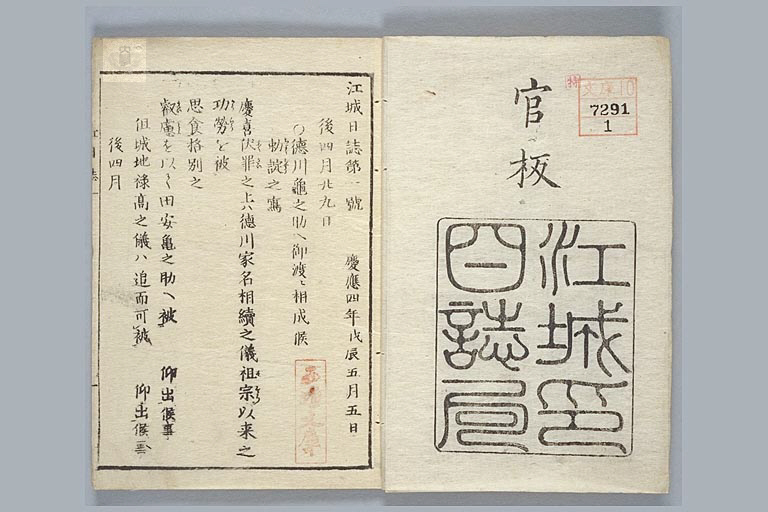 官板
江城
日誌局
特
文庫10
7291
1
江城日誌第一號 慶應四年戊辰五月五日
後四月廿九日
○德川龜之助へ御渡ニ相成候
勅諚之寫
慶喜伏罪之上ハ德川家名相續之儀祖宗以来之
功勞を被
思食格別之
叡慮を以て田安亀之助へ被 仰出候事
但城地祿高之儀ハ追而可被 仰出候云
後四月